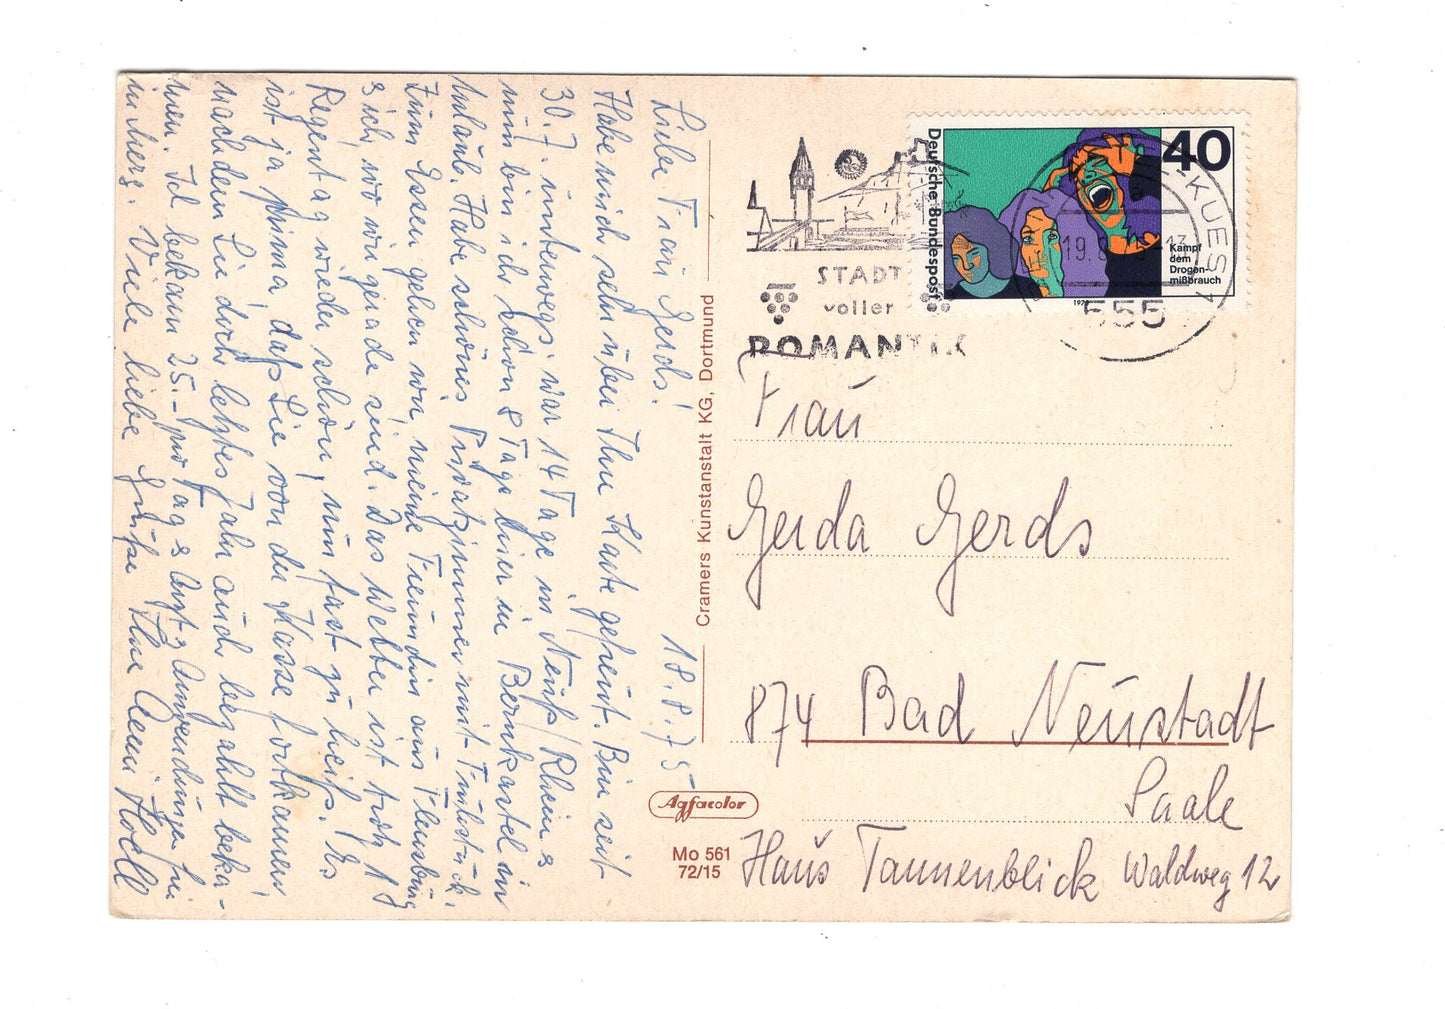 Liebe Frau Gerds! 18.8.75
Habe mich sehr über Ihre Karte gefreut. Bin seit
30.7. unterwegs, war 14 Tage in Neuß/Rhein &
nun bin ich schon 8 Tage hier in Bernkastel in
Urlaub. Habe schönes Privatzimmer mit Frühstück.
Zum Essen gehen wir, meine Freundin aus Flensburg
& ich, wo wir gerade sind. Das Wetter ist trotz 18
Regentag wieder schön, nun fast zu heiß. Es
ist ja prima, daß Sie von der Kasse fortkamen
nachdem Sie doch letztes Jahr auch bezahlt beka-
men. Ich bekam 25.- pro Tag & Arzt & Anwendungen frei
in Merg. Viele liebe Grüße Ihre Aenni
Cramers Kunstanstalt KG, Dortmund
Agfacolor
Mo 561
72/15
STADT
voller
ROMANTIK
Deutsche Bundespost
40
Kampf
dem
Drogen-
mißbrauch
KUES 1
19.8.75-13
555
Frau
Gerda Gerds
874 Bad Neustadt
Saale
Haus Tannenblick Waldweg 12